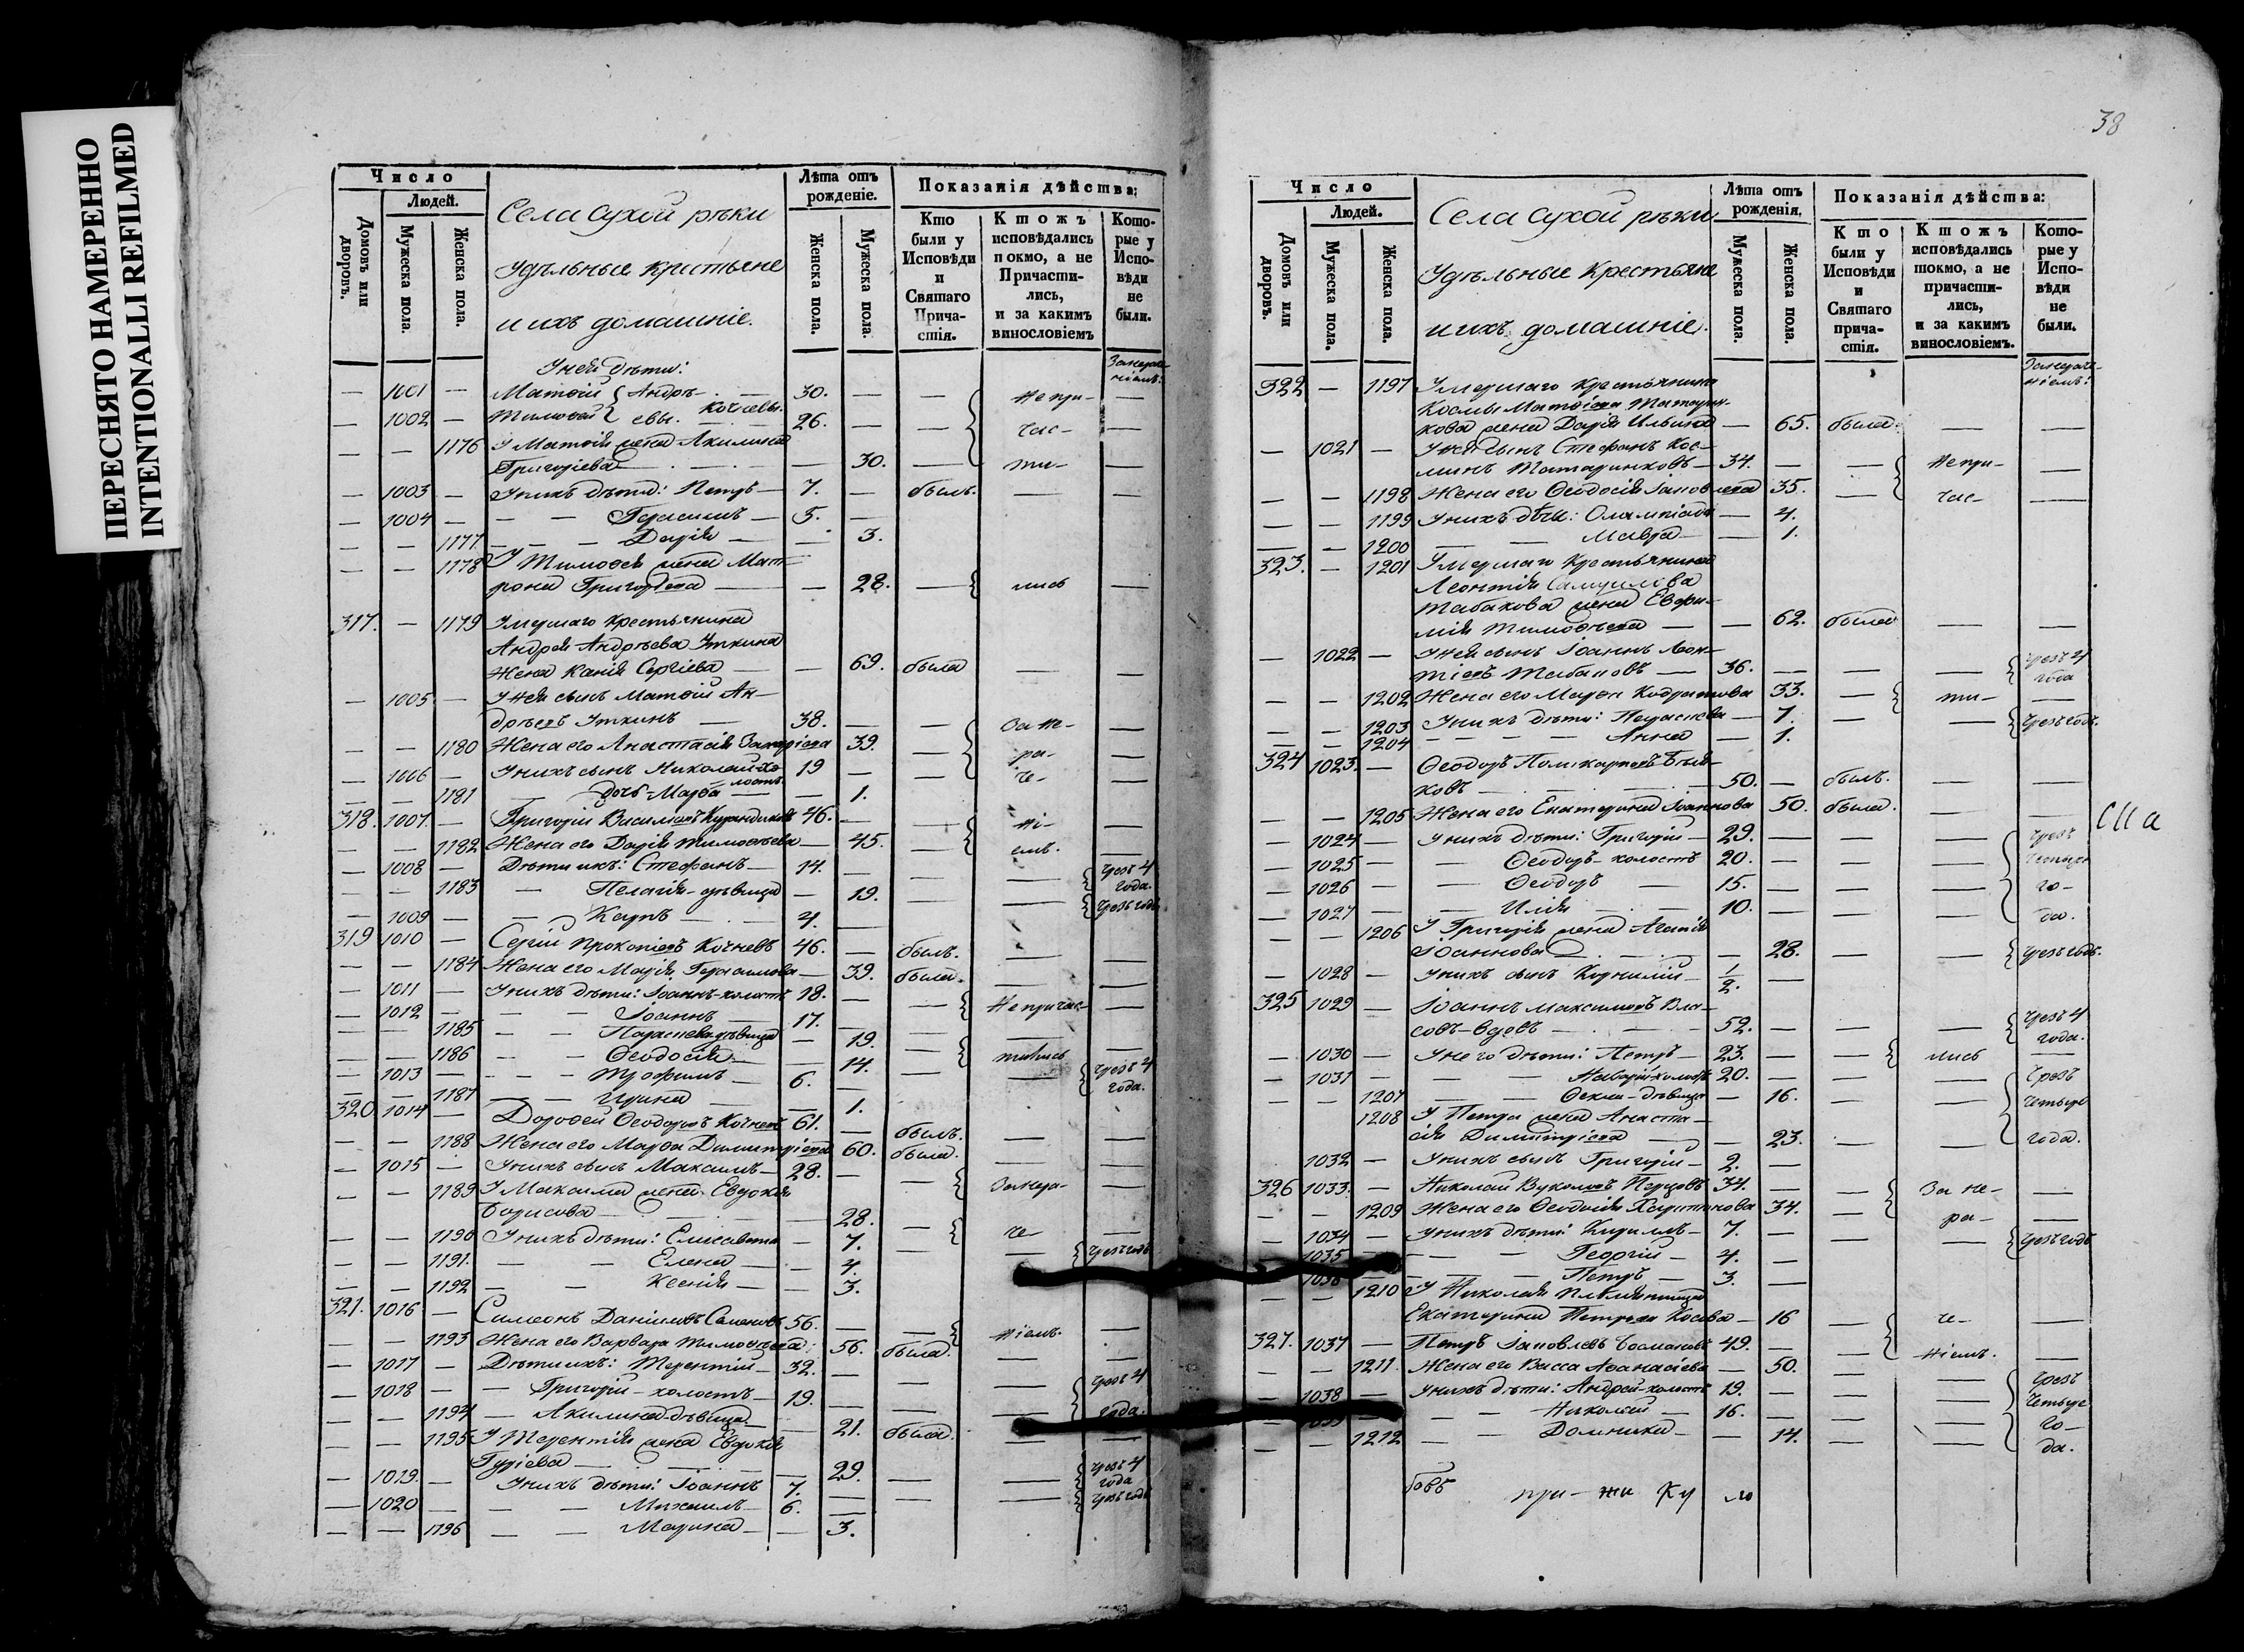 ПЕРЕСНЯТО НАМЕРЕННО
INTENTIONALLI REFILMED
Число
Людей.
Домовъ или дворовъ.
Мужеска пола.
Женска пола.
Села Сухой рѣки
Удѣльные Кристьяне
и ихъ домашніе.
Лѣта отъ рожденіе.
Женска пола.
Мужеска пола.
Показанія дѣйства:
Кто были у Исповѣди и Святаго Прича-стія.
Ктожъ исповѣдались покмо, а не Причасти-лись, и за какимъ винословіемъ
Кото-рые у Испо-вѣди не были.
У нея дѣти:
— 1001 — Матѳій Андрѣ- 30. — — Непри- —
— 1002 — Тимоѳей евы. Кочневы 26. — — час- —
— — 1176 У Матѳія жена Акилина
Григоріева — 30. — ти- —
— 1003 — У нихъ дѣти: Петръ — 7. — былъ. — —
— 1004 — — — Герасимъ — 5. —
— — 1177 — — Дарія — — 3.
— — 1178 У Тимоѳея жена Мат-
рона Григорьева — — 28. — лись —
317. — 1179 Умершаго Крестьянина
Андрея Андрѣева Уткина
жена Сергіева — — 69. была — —
— 1005 — У нея сынъ Матѳій Ан-
дрѣевъ Уткинъ — 38. — — За не- —
— — 1180 Жена его Анастасія Захаріева 39. — ра- —
— 1006 — У нихъ сынъ Николай-хо-
лостъ 19 — — че- —
— — 1181 — дочь-Марѳа — — 1.
318. 1007. — Григорій Васильевъ 46. — — ні- —
— — 1182 Жена его Дарія Тимоѳеева — 45. — емъ. —
— 1008 — Дѣти ихъ: Стефанъ — 14. — — — чрезъ 4
— — 1183 — Пелагія-дѣвица — 19. — — года.
чрезъ годъ
— 1009 — — Карпъ — 4. —
319 1010 — Сергій Прокопіевъ Кочневъ 46. — былъ. — —
— — 1184 Жена его Марія Герасимова — 39. была. — —
— 1011 — У нихъ дѣти: Іоаннъ-холостъ 18. — — Непричас- —
— 1012 — — — Іоаннъ — 17. —
— — 1185 — — Параскева дѣвица — 19. — тились —
— — 1186 — — Ѳеодосія — — 14. — — чрезъ 4
года.
— 1013 — — — Трофимъ — 6. —
— — 1187 — — Ирина — — 1.
320. 1014 — Дороѳей Ѳеодоровъ Кочневъ 61. — былъ. — —
— — 1188 Жена его Марѳа Димитріева 60. была. — —
— 1015 — У нихъ сынъ Максимъ — 28. — — Занера- —
— — 1189 У Максима жена Евдокія
Борисова — 28. — че —
— — 1190 У нихъ дѣти: Елисавета — 7. — — чрезъ годъ
— — 1191. — — Елена — — 4.
— — 1192 — — Ксенія — — 3.
321. 1016 — Симеонъ Даниловъ Семеновъ 56. — — ніемъ. —
— 1193 Жена его Варвара Тимоѳеева 56. была. — —
— 1017 — Дѣти ихъ: Терентій — 32. — — — чрезъ 4
— 1018 — — Григорій — холостъ — 19. — — — года.
— — 1194 — Акилина дѣвица — 21. была. — —
— — 1195 У Терентія жена Евдокія
Гуріева — 29. — — чрезъ 4
года
— 1019. — У нихъ дѣти: Іоаннъ 7. — — — чрезъ годъ
— 1020 — — — Михаилъ — 6. —
— — 1196 — — Марина — — 3.
38
Число
Людей.
Домовъ или дворовъ.
Мужеска пола.
Женска пола.
Села Сухой рѣки
Удѣльные Крестьяне
и ихъ домашніе.
Лѣта отъ рожденія.
Мужеска пола.
Женска пола.
Показанія дѣйства:
Кто были у Исповѣди и Святаго прича-стія.
Ктожъ исповѣдались шокмо, а не причасти-лись, и за какимъ винословіемъ.
Кото-рые у Испо-вѣди не были.
322 — 1197 Умершаго Крестьянина
Космы Матѳіева Татарин-
кова жена Дарія Ильина — 65. была. — —
— 1021 — У нея сынъ Стефанъ Кос-
минъ Татаринковъ — 34. — — Непри- —
— — 1198 Жена его Ѳеодосія Іаковлева 35. — час- —
— — 1199 У нихъ дѣти: Олимпіада — 4.
— — 1200 — — Мавра — — 1.
323. — 1201 Умершаго Крестьянина
Леонтія Самуилова
Табакова жена Евфи-
мія Тимоѳеева — — 62. была — —
— 1022 — У нея сынъ Іоаннъ Леон-
тіевъ Табаковъ — 36. — — — чрезъ 4
года
— — 1202 Жена его Марѳа Кодратова 33. — ти- —
— — 1203 У нихъ дѣти: Параскева — 7. — — чрезъ годъ.
— — 1204 — — Анна — 1.
324 1023. — Ѳеодоръ Поликарповъ
ковъ — 50. — былъ. — —
— — 1205 Жена его Екатерина Іоаннова 50. была. — —
США
— 1024 — У нихъ дѣти: Григорій — 29. — — — чрезъ
— 1025 — — Ѳеодоръ-холостъ 20. — — — четыре
— 1026 — — Ѳеодоръ — 15. — — — го-
— 1027 — — Илія — 10. — — — да.
— — 1206 У Григорія жена Агапія
Іоаннова — 28. — — чрезъ годъ.
— 1028 — У нихъ сынъ Корнилій — 1/2. —
325 1029 — Іоаннъ Максимовъ Вла-
совъ-вдовъ — 52. — — — чрезъ 4
года.
— 1030 — У него дѣти: Петръ — 23. — — лись —
— 1031 — — холостъ 20. — — — Чрезъ
— — 1207 — — Ѳекла-дѣвица — 16. — — четыре
1208 У Петра жена Анаста-
сія Димитріева — — 23. — — года.
1032 — У нихъ сынъ Григорій — 2. —
326 1033. — Николай Вуколовъ Перцовъ 34. — — За не- —
— — 1209 Жена его Ѳеодосія Харитонова 34. — ра- —
— 1034 — У нихъ дѣти: Кириллъ — 7. — — — чрезъ годъ
1035 — — — Георгій — 4. —
1036 — — — Петръ — 3. —
— — 1210 У Николая племянница
Екатерина Петрова Косова — 16 — че- —
327. 1037 — Петръ Іаковлевъ 49. — — ніемъ. —
— — 1211. Жена его Васса Аѳанасіева — 50. — — Чрезъ
— 1038 — У нихъ дѣти: Андрей-холостъ 19. — — — Четыре
1039 — — Николай — 16. — — — го-
— — 1212 — — Домника — — 14. — — да.